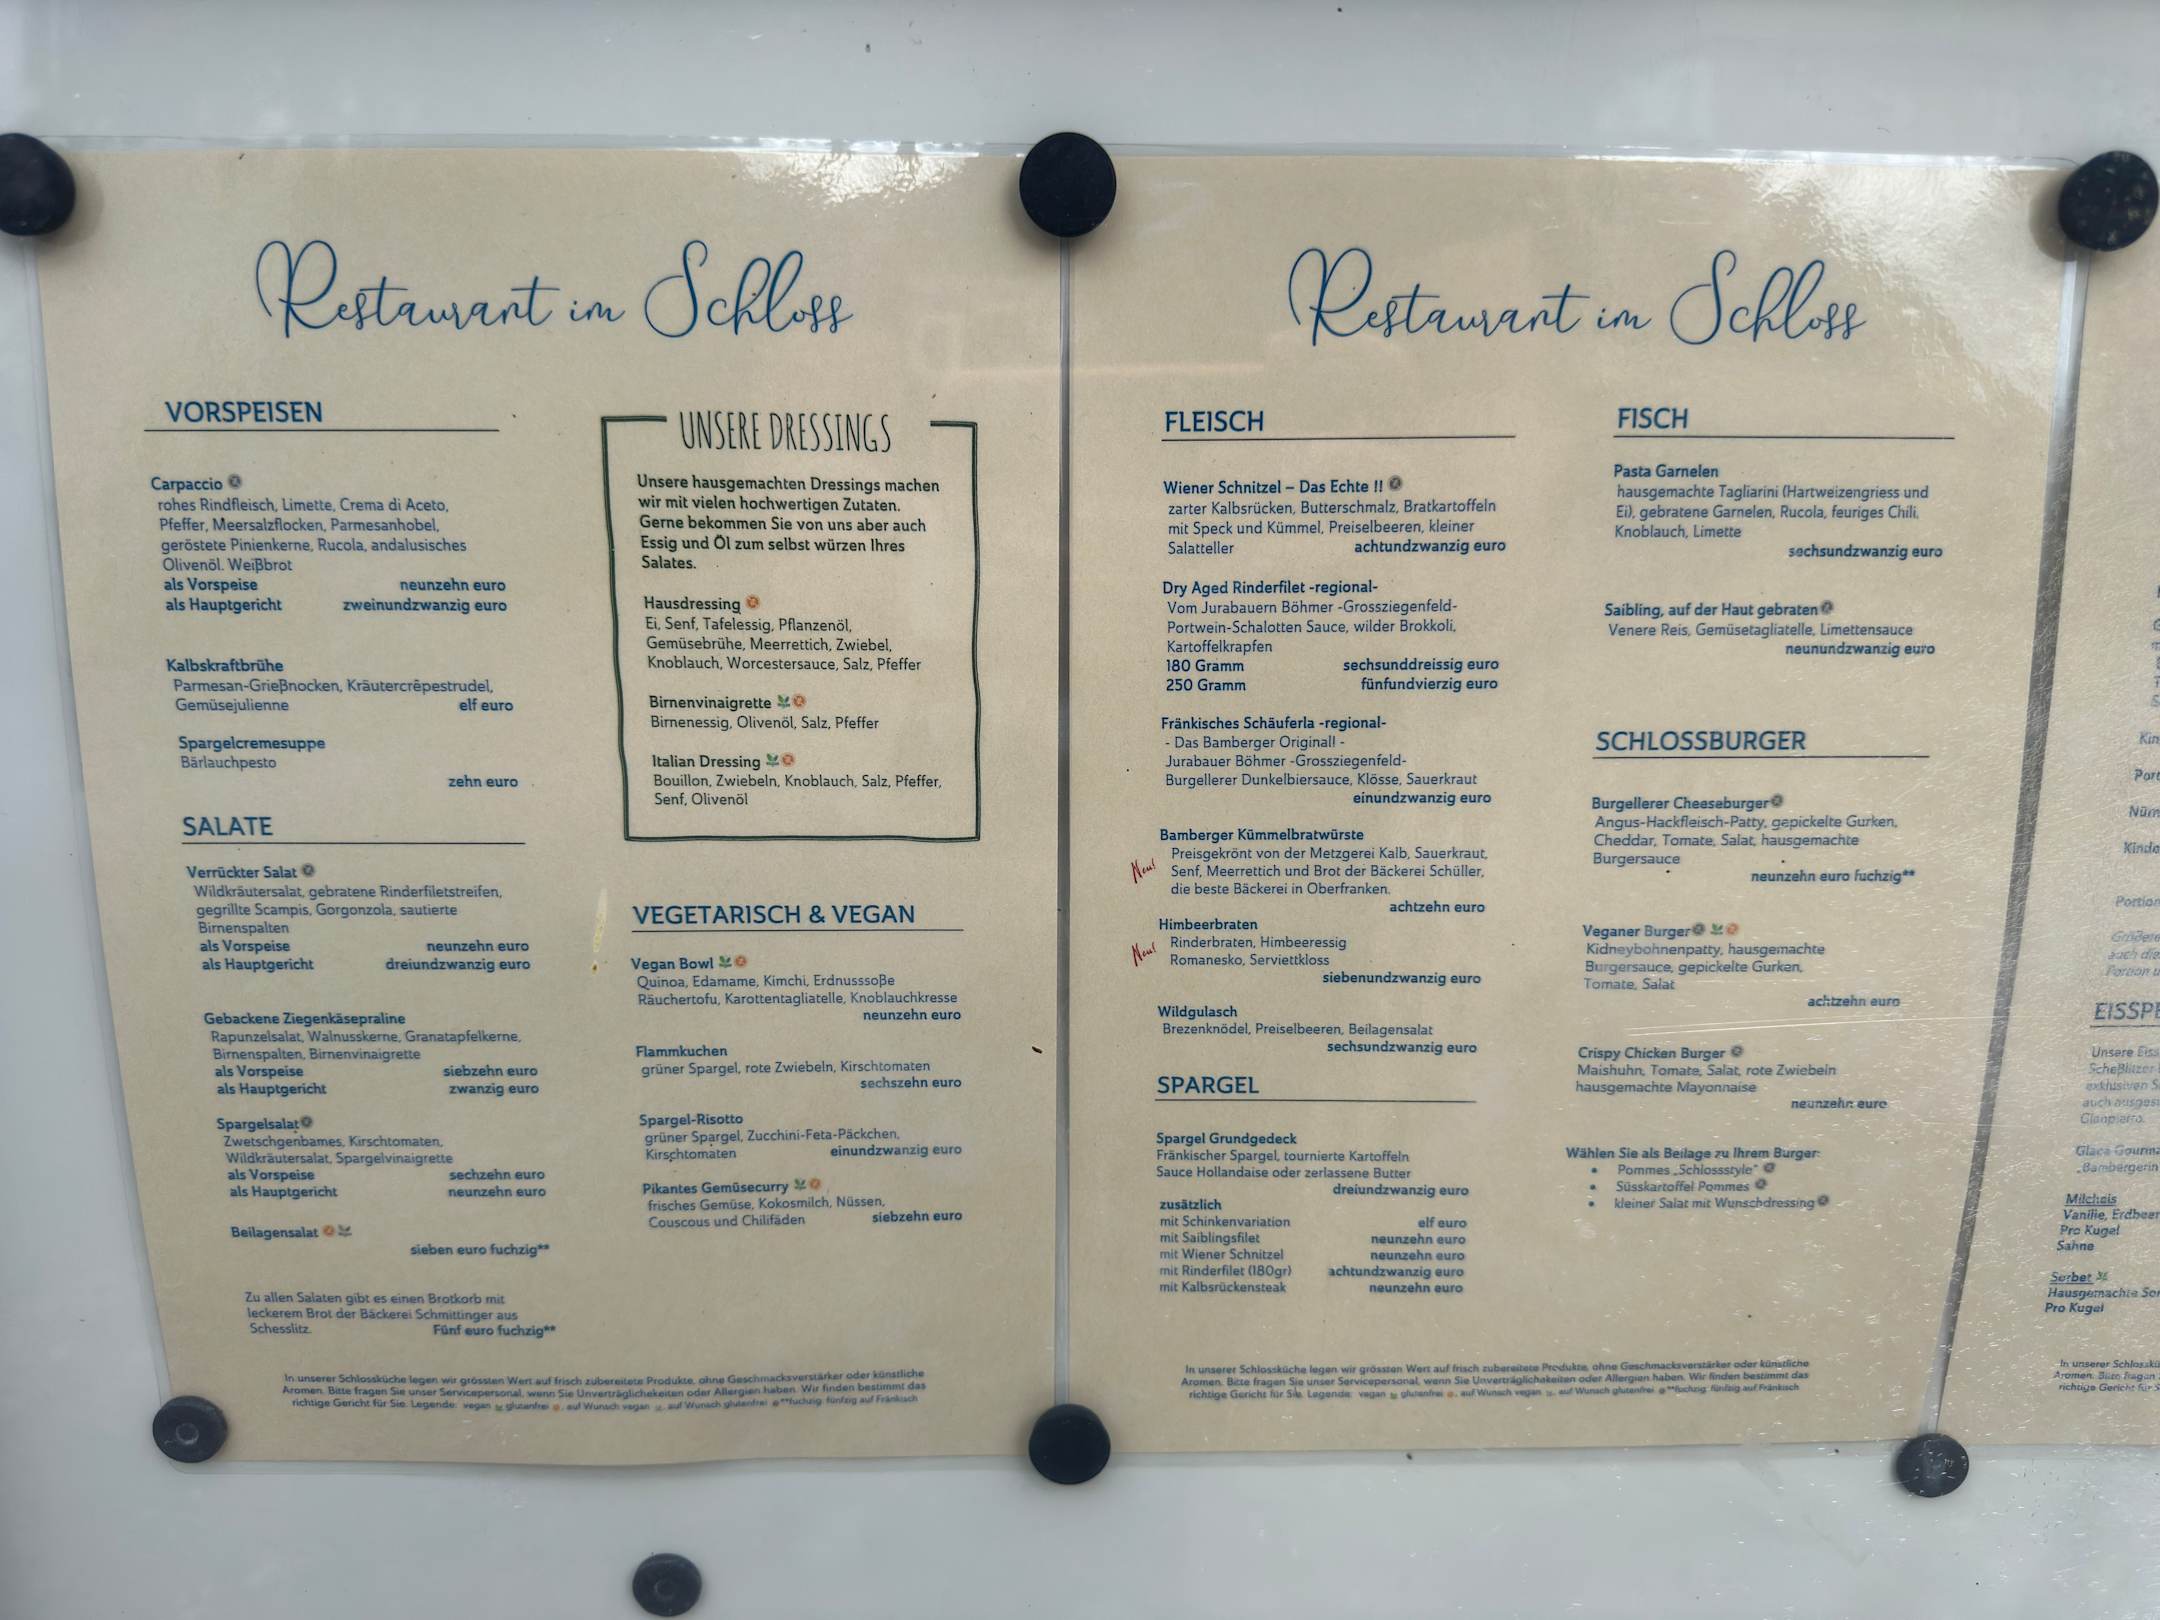 Restaurant im Schloss
VORSPEISEN
Carpaccio
rohes Rindfleisch, Limette, Crema di Aceto,
Pfeffer, Meersalzflocken, Parmesanhobel,
geröstete Pinienkerne, Rucola, andalusisches
Olivenöl. Weißbrot
als Vorspeise neunzehn euro
als Hauptgericht zweinundzwanzig euro
Kalbskraftbrühe
Parmesan-Grießnocken, Kräutercrêpestrudel,
Gemüsejulienne elf euro
Spargelcremesuppe
Bärlauchpesto
zehn euro
SALATE
Verrückter Salat
Wildkräutersalat, gebratene Rinderfiletstreifen,
gegrillte Scampis, Gorgonzola, sautierte
Birnenspalten
als Vorspeise neunzehn euro
als Hauptgericht dreiundzwanzig euro
Gebackene Ziegenkäsepraline
Rapunzelsalat, Walnusskerne, Granatapfelkerne,
Birnenspalten, Birnenvinaigrette
als Vorspeise siebzehn euro
als Hauptgericht zwanzig euro
Spargelsalat
Zwetschgenbames, Kirschtomaten,
Wildkräutersalat, Spargelvinaigrette
als Vorspeise sechzehn euro
als Hauptgericht neunzehn euro
Beilagensalat
sieben euro fuchzig**
Zu allen Salaten gibt es einen Brotkorb mit
leckerem Brot der Bäckerei Schmittinger aus
Schesslitz. Fünf euro fuchzig**
UNSERE DRESSINGS
Unsere hausgemachten Dressings machen
wir mit vielen hochwertigen Zutaten.
Gerne bekommen Sie von uns aber auch
Essig und Öl zum selbst würzen Ihres
Salates.
Hausdressing
Ei, Senf, Tafelessig, Pflanzenöl,
Gemüsebrühe, Meerrettich, Zwiebel,
Knoblauch, Worcestersauce, Salz, Pfeffer
Birnenvinaigrette
Birnenessig, Olivenöl, Salz, Pfeffer
Italian Dressing
Bouillon, Zwiebeln, Knoblauch, Salz, Pfeffer,
Senf, Olivenöl
VEGETARISCH & VEGAN
Vegan Bowl
Quinoa, Edamame, Kimchi, Erdnusssoße
Räuchertofu, Karottentagliatelle, Knoblauchkresse
neunzehn euro
Flammkuchen
grüner Spargel, rote Zwiebeln, Kirschtomaten
sechszehn euro
Spargel-Risotto
grüner Spargel, Zucchini-Feta-Päckchen,
Kirschtomaten einundzwanzig euro
Pikantes Gemüsecurry
frisches Gemüse, Kokosmilch, Nüssen,
Couscous und Chilifäden siebzehn euro
In unserer Schlossküche legen wir grössten Wert auf frisch zubereitete Produkte, ohne Geschmacksverstärker oder künstliche
Aromen. Bitte fragen Sie unser Servicepersonal, wenn Sie Unverträglichekeiten oder Allergien haben. Wir finden bestimmt das
richtige Gericht für Sie. Legende: vegan glutenfrei , auf Wunsch vegan , auf Wunsch glutenfrei **fuchzig: fünfzig auf Fränkisch
Restaurant im Schloss
FLEISCH
Wiener Schnitzel – Das Echte !!
zarter Kalbsrücken, Butterschmalz, Bratkartoffeln
mit Speck und Kümmel, Preiselbeeren, kleiner
Salatteller achtundzwanzig euro
Dry Aged Rinderfilet -regional-
Vom Jurabauern Böhmer -Grossziegenfeld-
Portwein-Schalotten Sauce, wilder Brokkoli,
Kartoffelkrapfen
180 Gramm sechsunddreissig euro
250 Gramm fünfundvierzig euro
Fränkisches Schäuferla -regional-
- Das Bamberger Originall -
Jurabauer Böhmer -Grossziegenfeld-
Burgellerer Dunkelbiersauce, Klösse, Sauerkraut
einundzwanzig euro
Bamberger Kümmelbratwürste
Preisgekrönt von der Metzgerei Kalb, Sauerkraut,
Neu! Senf, Meerrettich und Brot der Bäckerei Schüller,
die beste Bäckerei in Oberfranken.
achtzehn euro
Himbeerbraten
Neu! Rinderbraten, Himbeeressig
Romanesko, Serviettkloss
siebenundzwanzig euro
Wildgulasch
Brezenknödel, Preiselbeeren, Beilagensalat
sechsundzwanzig euro
SPARGEL
Spargel Grundgedeck
Fränkischer Spargel, tournierte Kartoffeln
Sauce Hollandaise oder zerlassene Butter
dreiundzwanzig euro
zusätzlich
mit Schinkenvariation elf euro
mit Saiblingsfilet neunzehn euro
mit Wiener Schnitzel neunzehn euro
mit Rinderfilet (180gr) achtundzwanzig euro
mit Kalbsrückensteak neunzehn euro
FISCH
Pasta Garnelen
hausgemachte Tagliarini (Hartweizengriess und
Ei), gebratene Garnelen, Rucola, feuriges Chili,
Knoblauch, Limette
sechsundzwanzig euro
Saibling, auf der Haut gebraten
Venere Reis, Gemüsetagliatelle, Limettensauce
neunundzwanzig euro
SCHLOSSBURGER
Burgellerer Cheeseburger
Angus-Hackfleisch-Patty, gepickelte Gurken,
Cheddar, Tomate, Salat, hausgemachte
Burgersauce
neunzehn euro fuchzig**
Veganer Burger
Kidneybohnenpatty, hausgemachte
Burgersauce, gepickelte Gurken,
Tomate, Salat
achtzehn euro
Crispy Chicken Burger
Maishuhn, Tomate, Salat, rote Zwiebeln
hausgemachte Mayonnaise
neunzehn euro
Wählen Sie als Beilage zu Ihrem Burger:
• Pommes „Schlossstyle"
• Süsskartoffel Pommes
• kleiner Salat mit Wunschdressing
In unserer Schlossküche legen wir grössten Wert auf frisch zubereitete Produkte, ohne Geschmacksverstärker oder künstliche
Aromen. Bitte fragen Sie unser Servicepersonal, wenn Sie Unverträglichekeiten oder Allergien haben. Wir finden bestimmt das
richtige Gericht für Sie. Legende: vegan glutenfrei , auf Wunsch vegan , auf Wunsch glutenfrei **fuchzig: fünfzig auf Fränkisch
Portion
EISSPE
Unsere Eiss
Scheßlitzer
exklusiven S
auch ausges
Glace Gourma
„Bambergerin
Milcheis
Vanille, Erdbeer
Pro Kugel
Sahne
Sorbet
Hausgemachte Sor
Pro Kugel
In unserer Schlosskü
Aromen. Bitte fragen
richtige Gericht für S